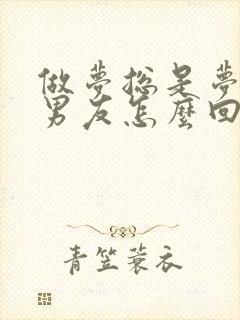 做夢总是夢
男友怎麼回
青笠蓑衣